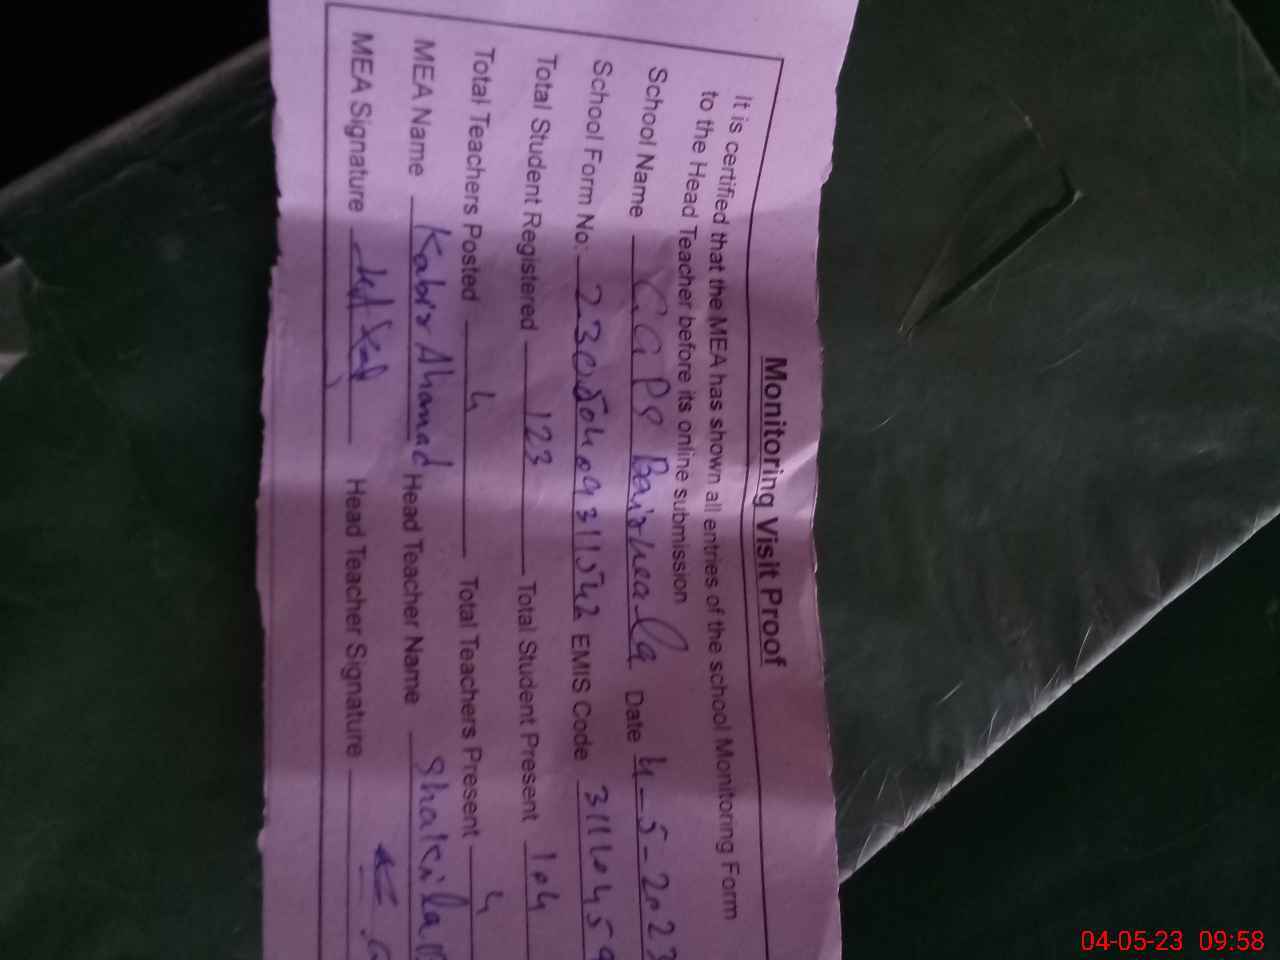 Monitoring Visit Proof
It is certified that the MEA has shown all entries of the school Monitoring Form
to the Head Teacher before its online submission
School Name G.GPS Date 4-5-2023
School Form No: EMIS Code 31110459
Total Student Registered 123 Total Student Present 104
Total Teachers Posted 4 Total Teachers Present 4
MEA Name Kabir Ahamad Head Teacher Name Shakila
MEA Signature Head Teacher Signature
04-05-23 09:58